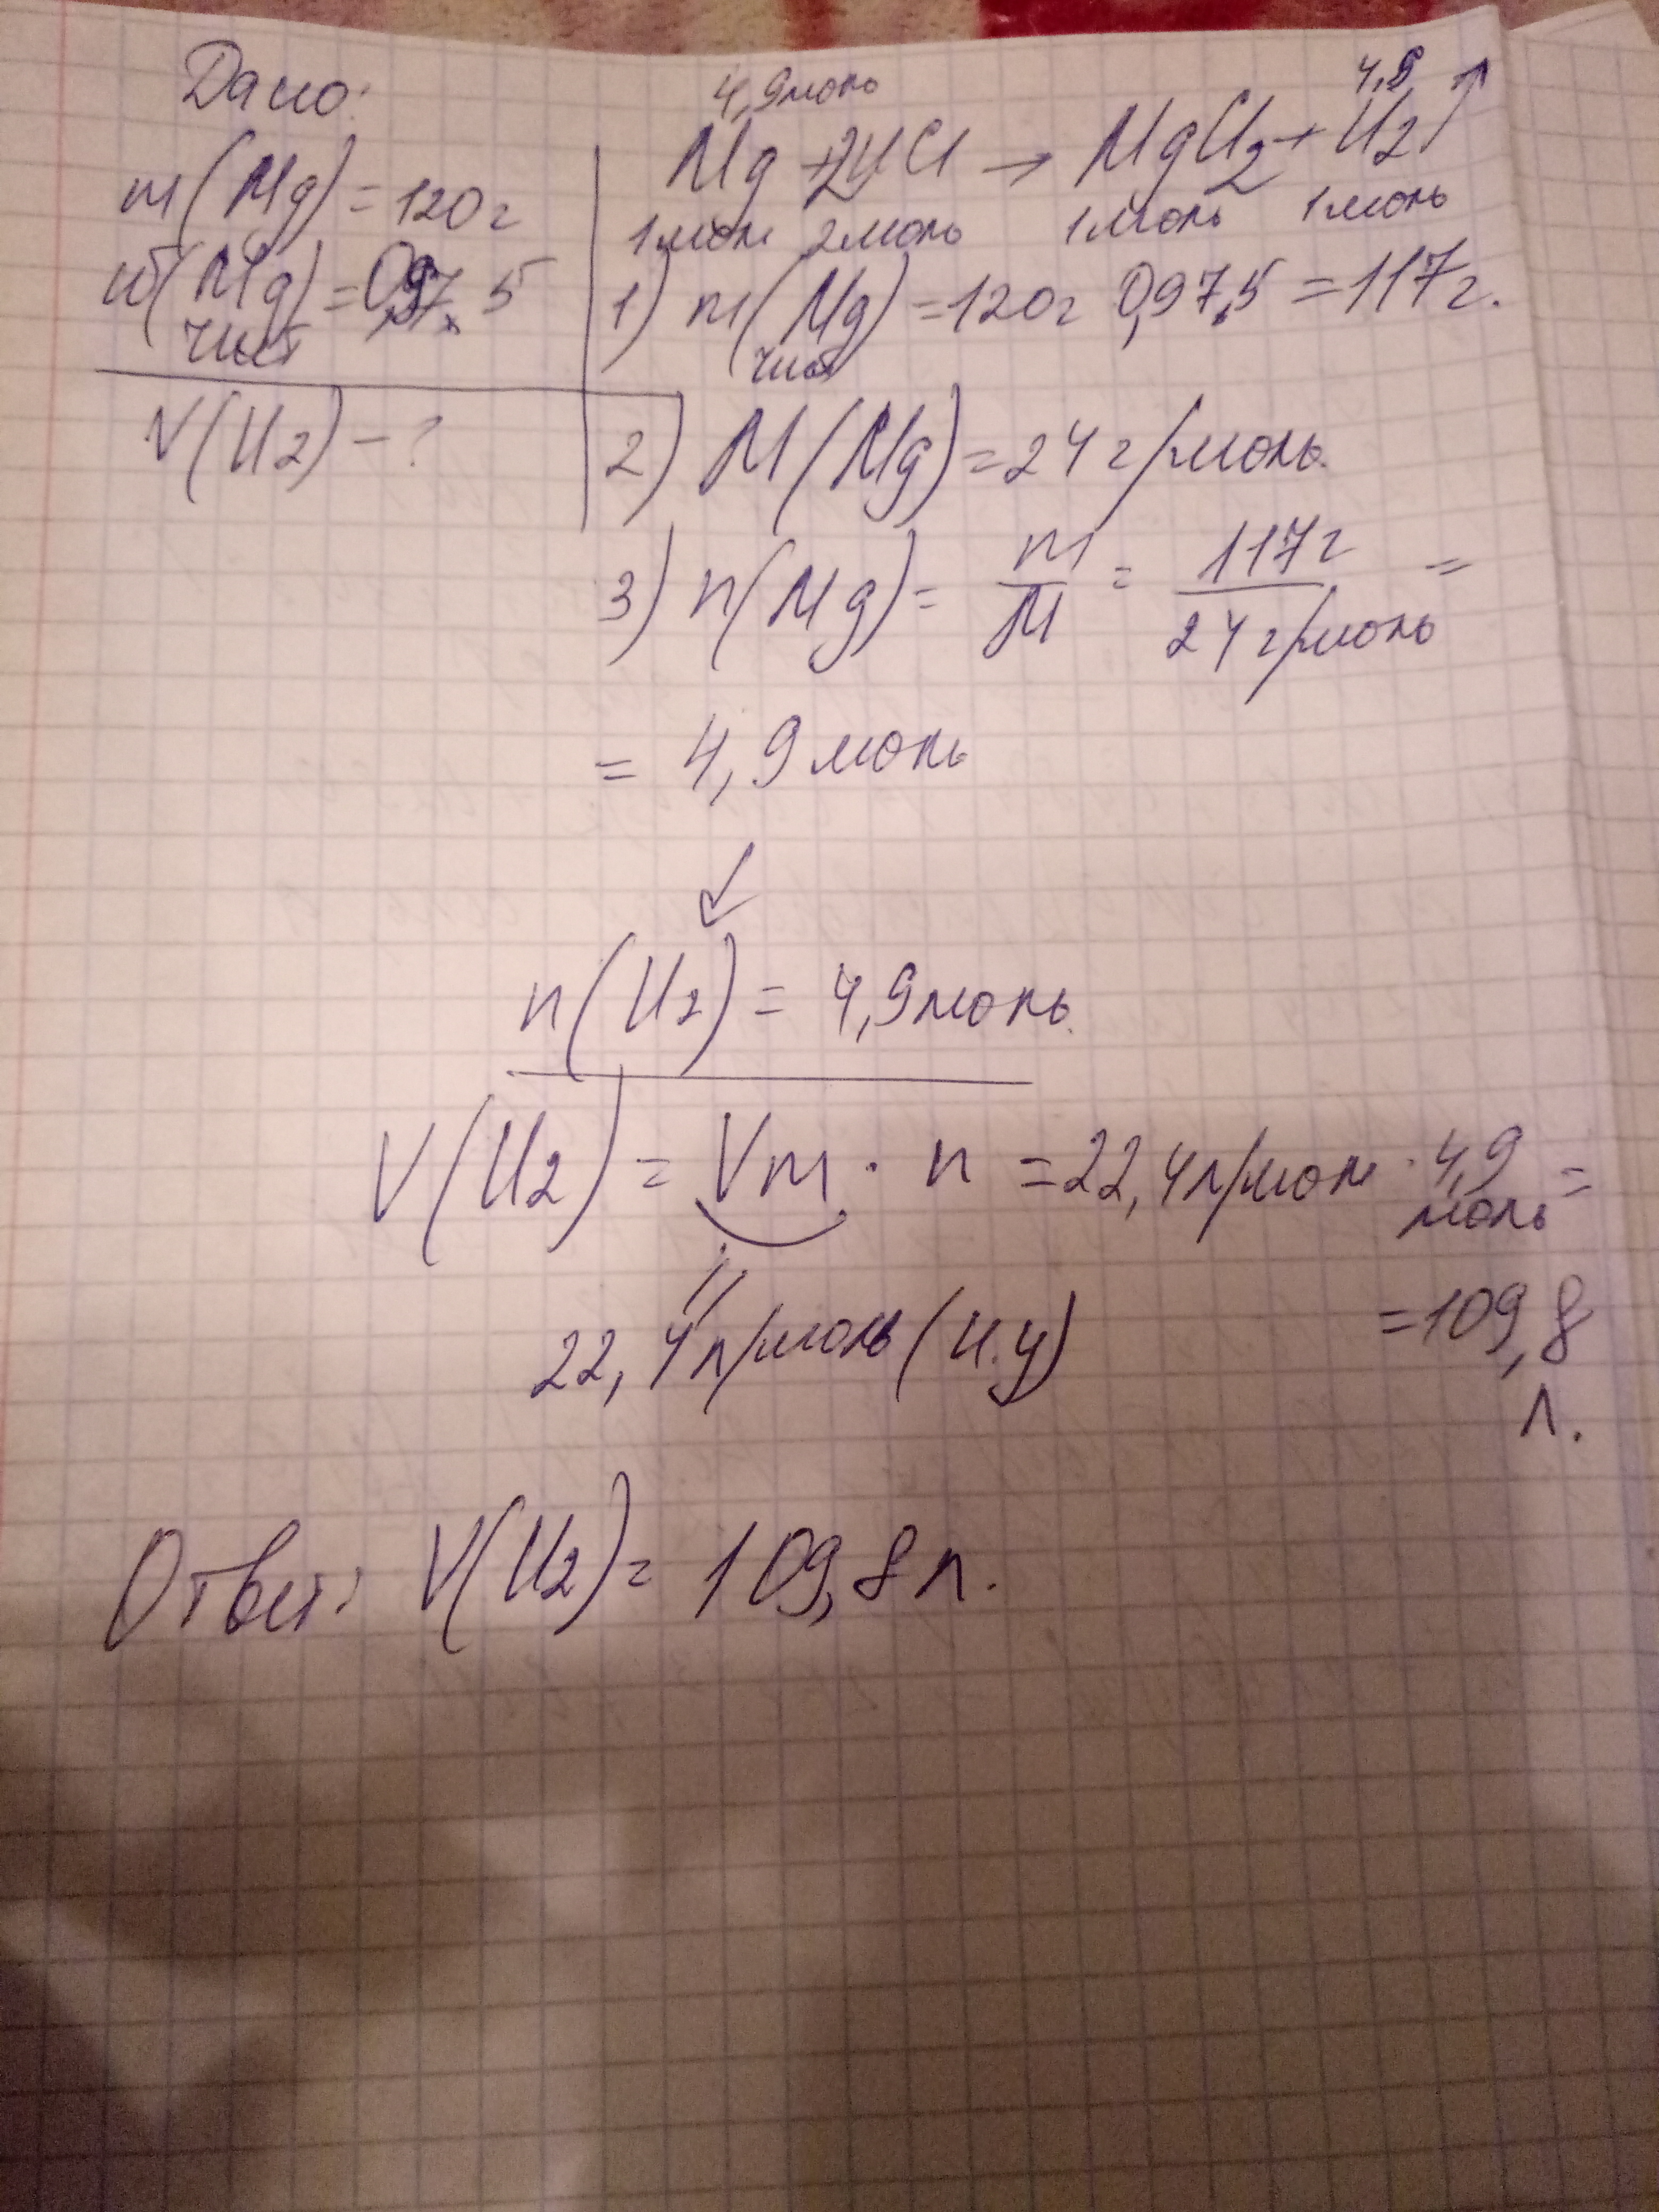 Дано:
m(Mg)=120г
ω(Mg)=0,97.5
чист
V(H2)-?
4,9моль 4,9
Mg+2HCl → MgCl2+H2↑
1моль 2моль 1моль 1моль
1) m(Mg)=120г 0,97.5=117г.
чист
2) M(Mg)=24г/моль.
3) n(Mg)= m/M = 117г/24г/моль =
= 4,9моль
✓
n(H2)= 4,9моль.
V(H2)= Vm · n =22,4л/моль · 4,9 моль =
22,4л/моль(н.у) =109,8
л.
Ответ: V(H2)= 109,8л.